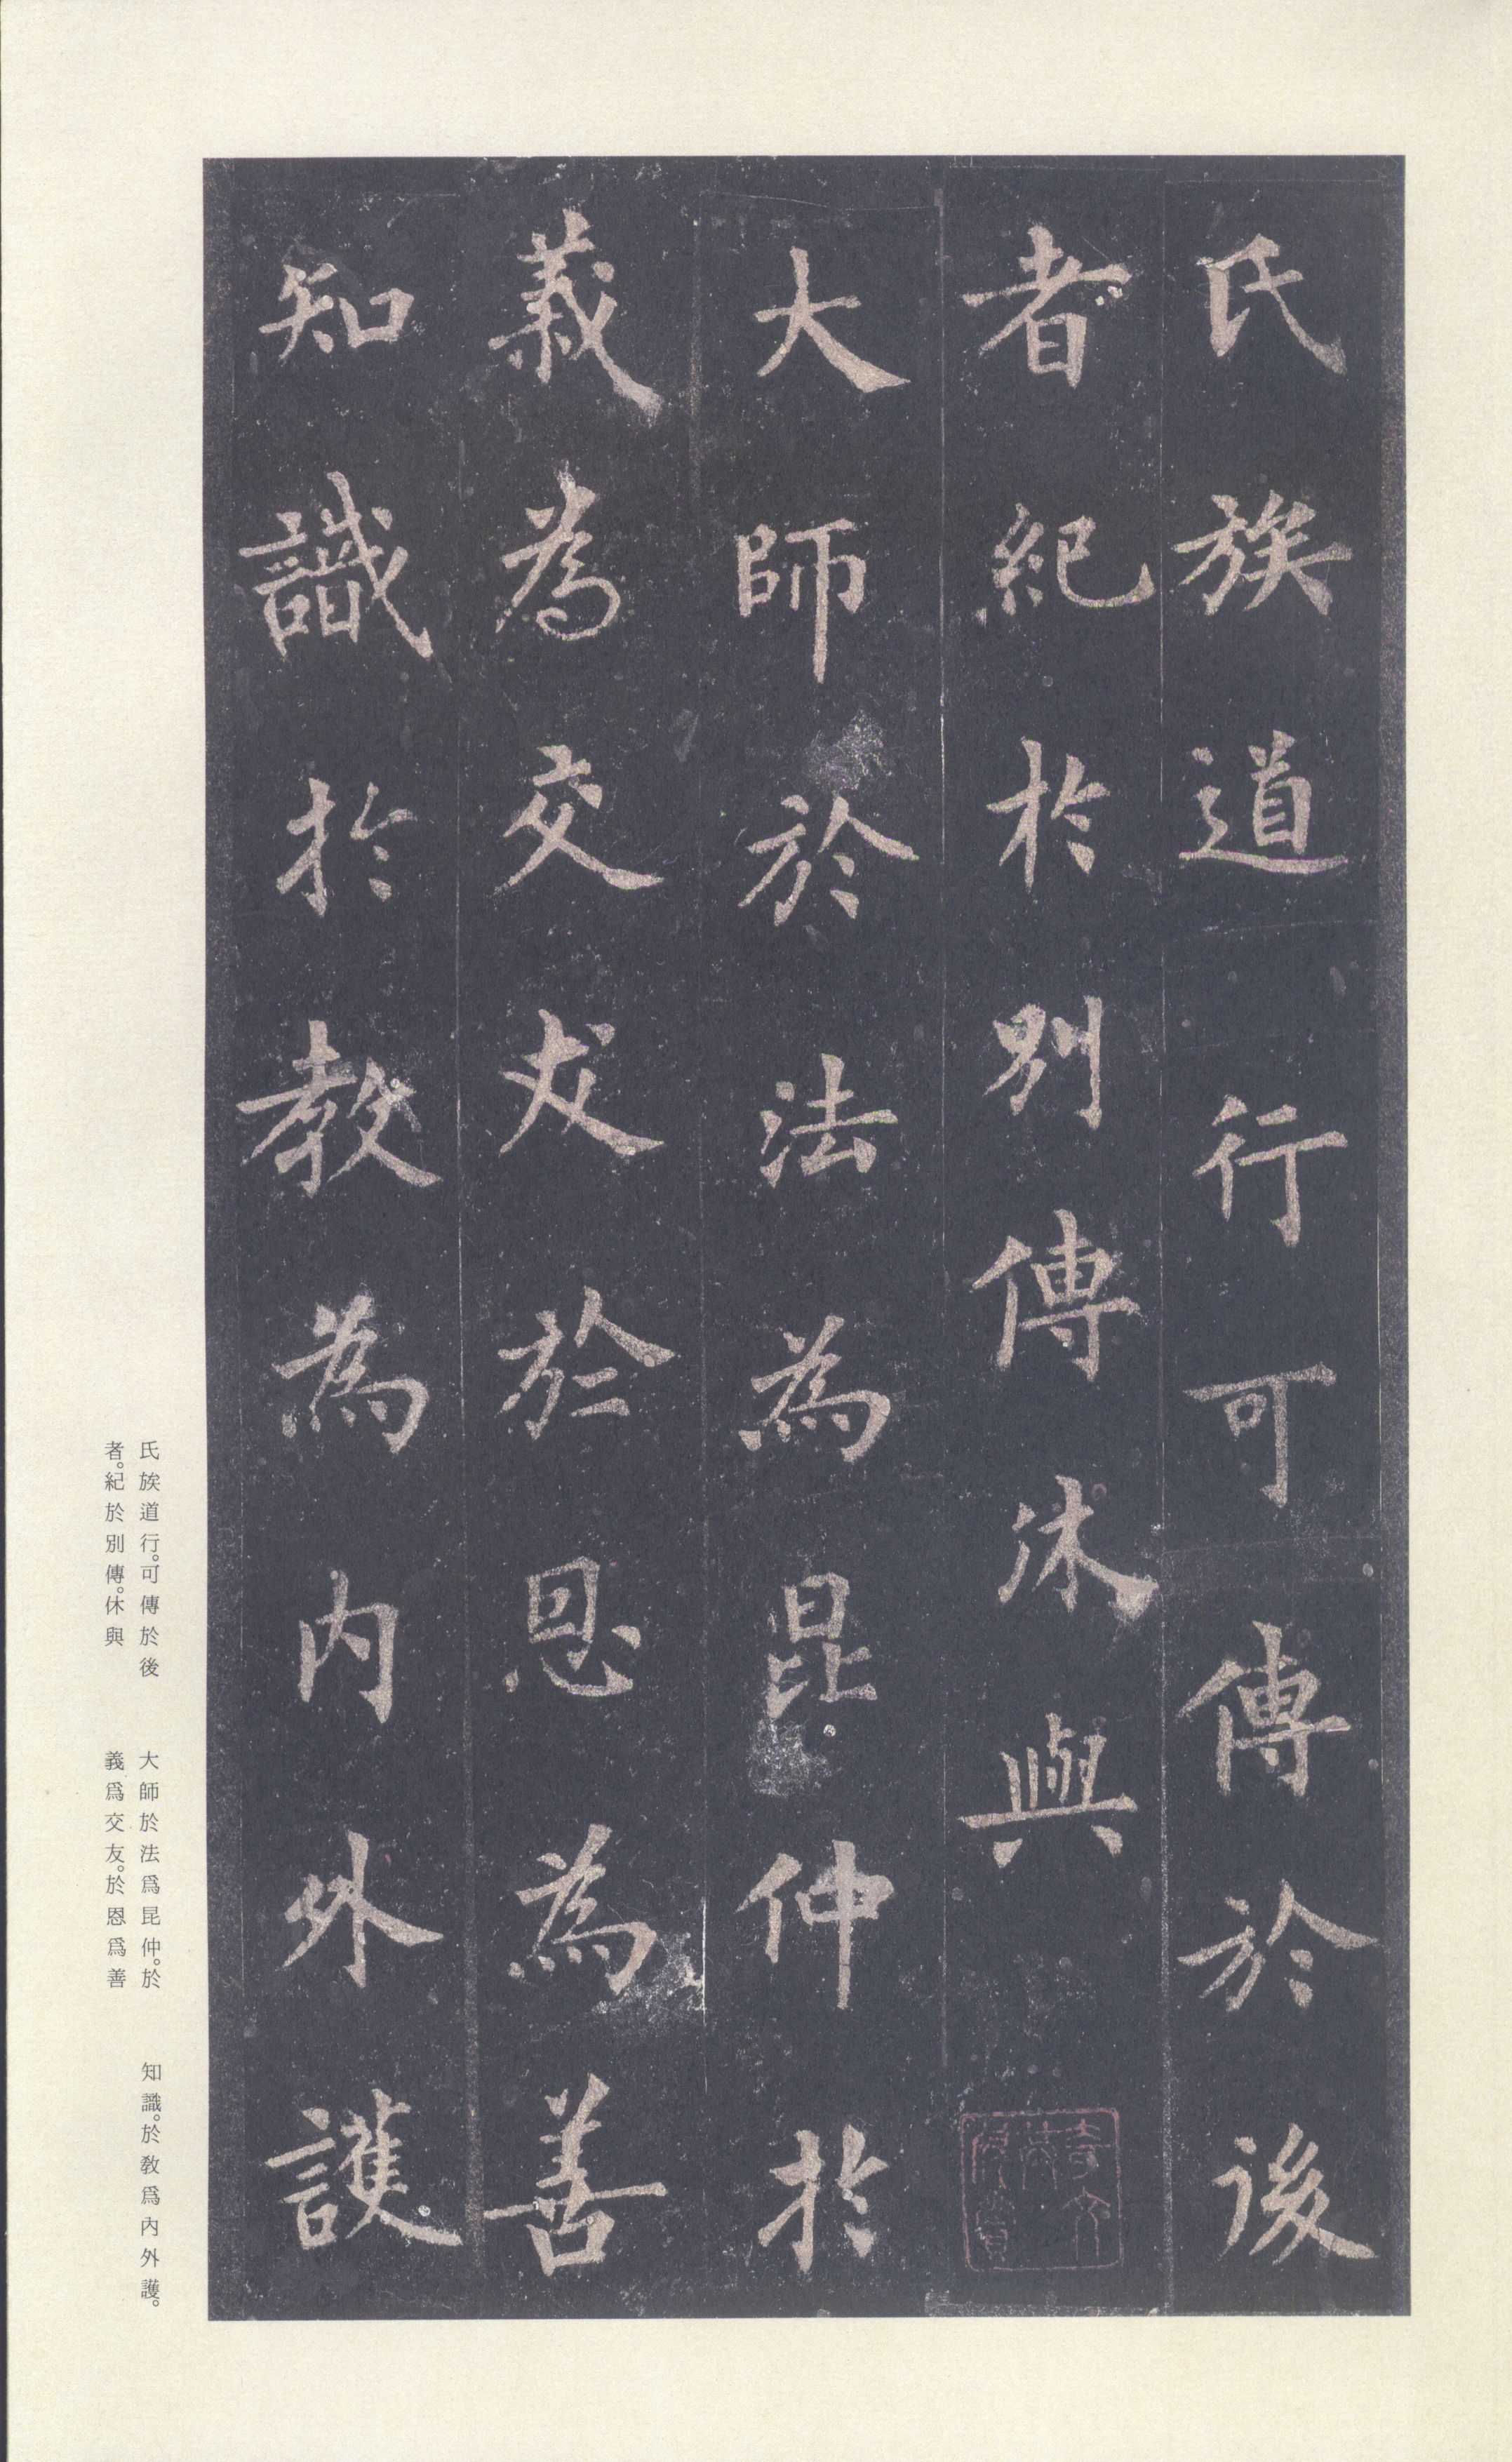 氏族道行可傳於後
者紀於別傳休與
大師於法為昆仲於
義為交友於恩為善
知識於教為内外護
氏族道行。可傳於後
者。紀於別傳。休與
大師於法爲昆仲。於
義爲交友。於恩爲善
知識。於教爲內外護。